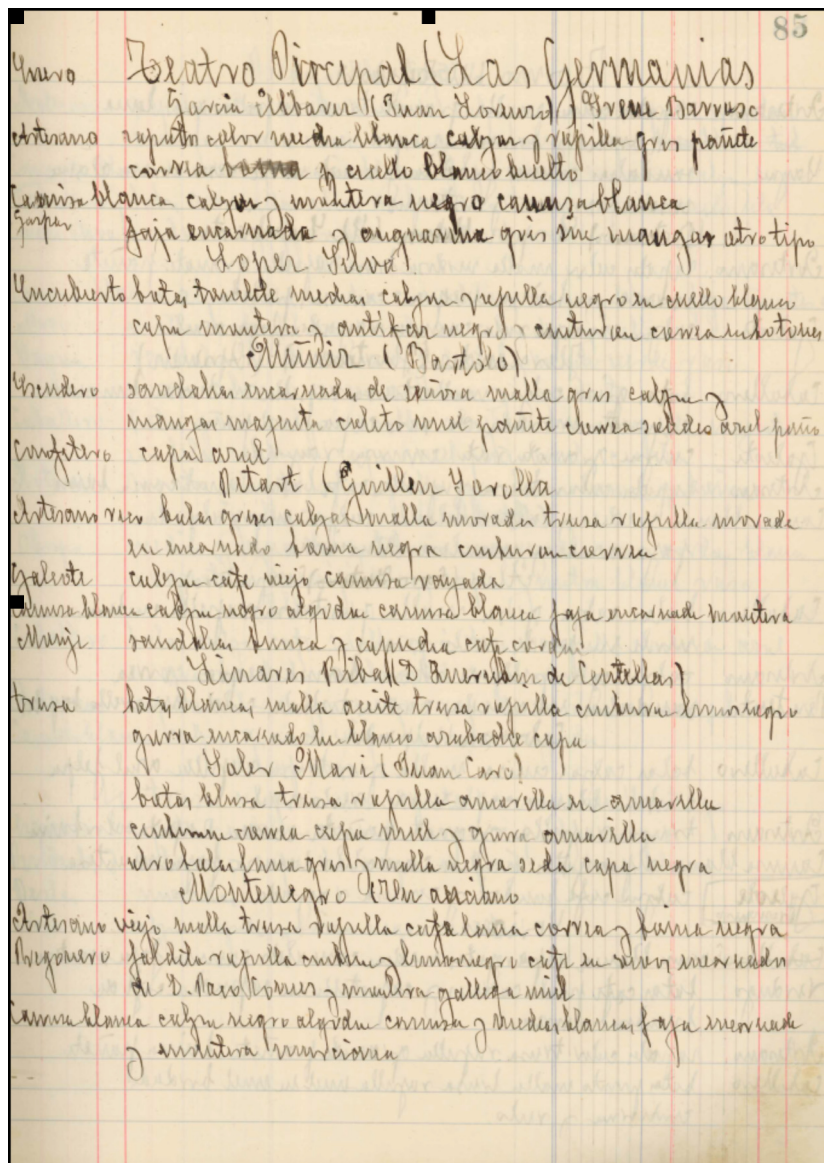 85
Enero Teatro Pircipal (Las Germanias
Garcia Albares (Juan Lorenzo) Irene Barroso
Artesano zapatos color media blanca calzon y rupilla gris pañete
correa y cuello blanco buelto
Camisa blanca calzon y montera negro camisa blanca
Gaspar faja encarnada y anguarina gris sin mangas otro tipo
Lopez Silva
Encubierto botas medias calzon y rupilla negro cuello blanco
capa montera y antifaz negro cinturon correa botones
(Bartolo)
Escudero sandalias encarnadas de señora malla gris calzon y
mangas majenta coleto miel pañete correa azul paño
Confitero capa azul
Pitart (Guillen Sorolla
Artesano rico botas grises calzas malla morada trusa rupilla morada
en encarnado negra cinturon correa
Galeote calzon cafe viejo camisa rayada
Camisa blanca calzon negro algodon camisa blanca faja encarnada montera
Monje sandalias tunica y capucha cafe cordon
Linares Ribas (D de Centellas)
trusa botas blancas malla aceite trusa rupilla cintura negro
gorra encarnado en blanco capa
Soler Mari (Juan Caro)
botas blusa trusa rupilla amarilla en amarilla
cinturon correa capa miel y gorra amarilla
otro botas lana gris y malla negra seda capa negra
Montenegro (Un anciano
Artesano viejo malla trusa rupilla cafe lana correa y negra
Pregonero faldita rupilla negro cafe en vivos encarnados
de D. Paco Comes y montera gallega miel
Camisa blanca calzon negro algodon camisa y medias blancas faja encarnada
y montera murciana